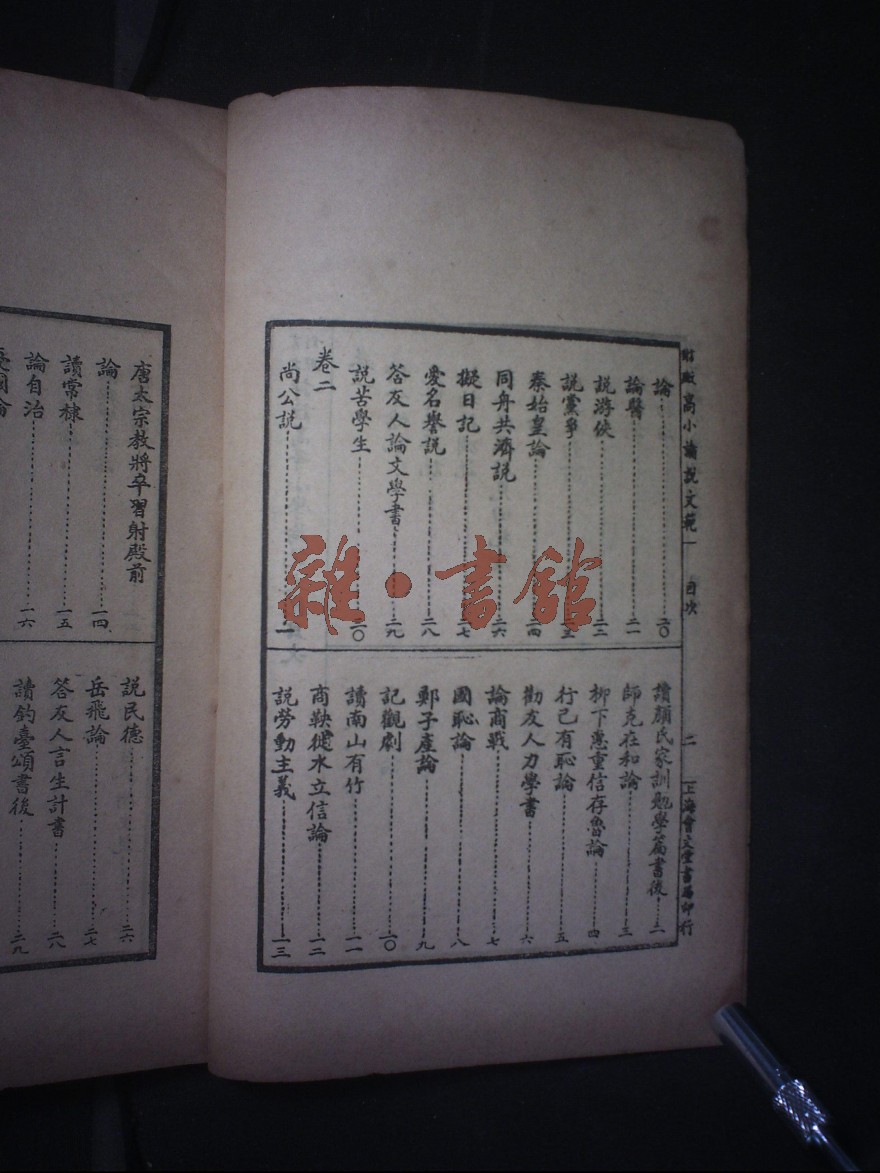 高小論說文範一 目次 二 上海會文堂書局印行
論 二〇
論醫 二一
說游俠 二三
說黨爭
秦始皇論 二四
同舟共濟說 二六
擬日記 二七
愛名譽說 二八
答友人論文學書 二九
說苦學生 三〇
卷二
尚公說 一
讀顏氏家訓勉學篇書後 二
師克在和論 三
柳下惠重信存魯論 四
行己有恥論 五
勸友人力學書 六
論商戰 七
國恥論 八
鄭子產論 九
記觀劇 一〇
讀南山有竹 一一
商鞅徙木立信論 一二
說勞動主義 一三
唐太宗教將卒習射殿前
論 一四
讀常棣 一五
論自治 一六
說民德 二六
岳飛論 二七
答友人言生計書 二八
讀釣臺頌書後 二九
雜·書館